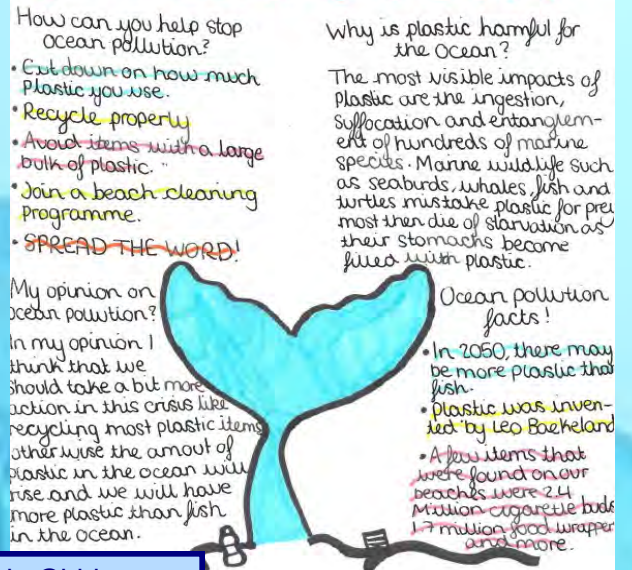 How can you help stop
ocean pollution?
• Cut down on how much
Plastic you use.
• Recycle properly
• Avoid items with a large
bulk of plastic.
• Join a beach cleaning
programme.
• SPREAD THE WORD!
My opinion on
ocean pollution?
In my opinion I
think that we
should take a bit more
action in this crisis like
recycling most plastic items
otherwise the amout of
plastic in the ocean will
rise and we will have
more plastic than fish
in the ocean.
Why is plastic harmful for
the Ocean?
The most visible impacts of
Plastic are the ingestion,
suffocation and entanglem-
ent of hundreds of marine
species. Marine wildlife such
as seaburds, whales, fish and
turtles mistake plastic for prey
most then die of starvation as
their stomachs become
filled with plastic.
Ocean pollution
facts!
• In 2050, there may
be more plastic than
fish.
• Plastic was inven-
ted by Leo Baekeland
• A few items that
were found on our
beaches were 2.4
Million cigarette buds
1.7 million food wrapper
and more.